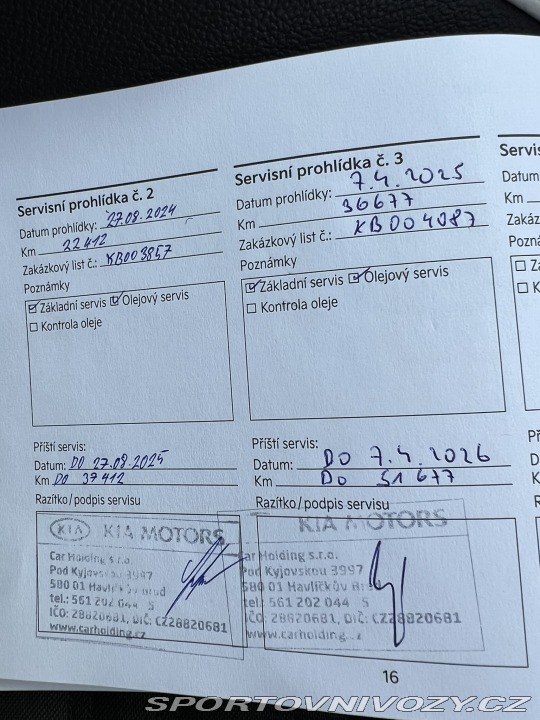 Servisní prohlídka č. 2
Datum prohlídky: 27.08.2024
Km 22 412
Zakázkový list č.: KB003857
Poznámky
Základní servis Olejový servis
Kontrola oleje
Příští servis:
Datum: DO 27.08.2025
Km DO 37412
Razítko/podpis servisu
KIA KIA MOTORS
Car Holding s.r.o.
Pod Kyjovskou 3997
580 01 Havlíčkův Brod
tel.: 561 202 044
IČO: 28820681, DIČ: CZ28820681
www.carholding.cz
Servisní prohlídka č. 3
Datum prohlídky: 7.4.2025
Km 36677
Zakázkový list č.: KB004087
Poznámky
Základní servis Olejový servis
Kontrola oleje
Příští servis:
Datum: DO 7.4.2026
Km DO 51677
Razítko/podpis servisu
KIA MOTORS
Car Holding s.r.o.
Pod Kyjovskou 3997
580 01 Havlíčkův
tel.: 561 202 044
IČO: 28820681, DIČ: CZ28820681
www.carholding.
16
Servis
Datum
Km
Zakáz
Pozná
Zá
K
Km
SPORTOVNIVOZY.CZ